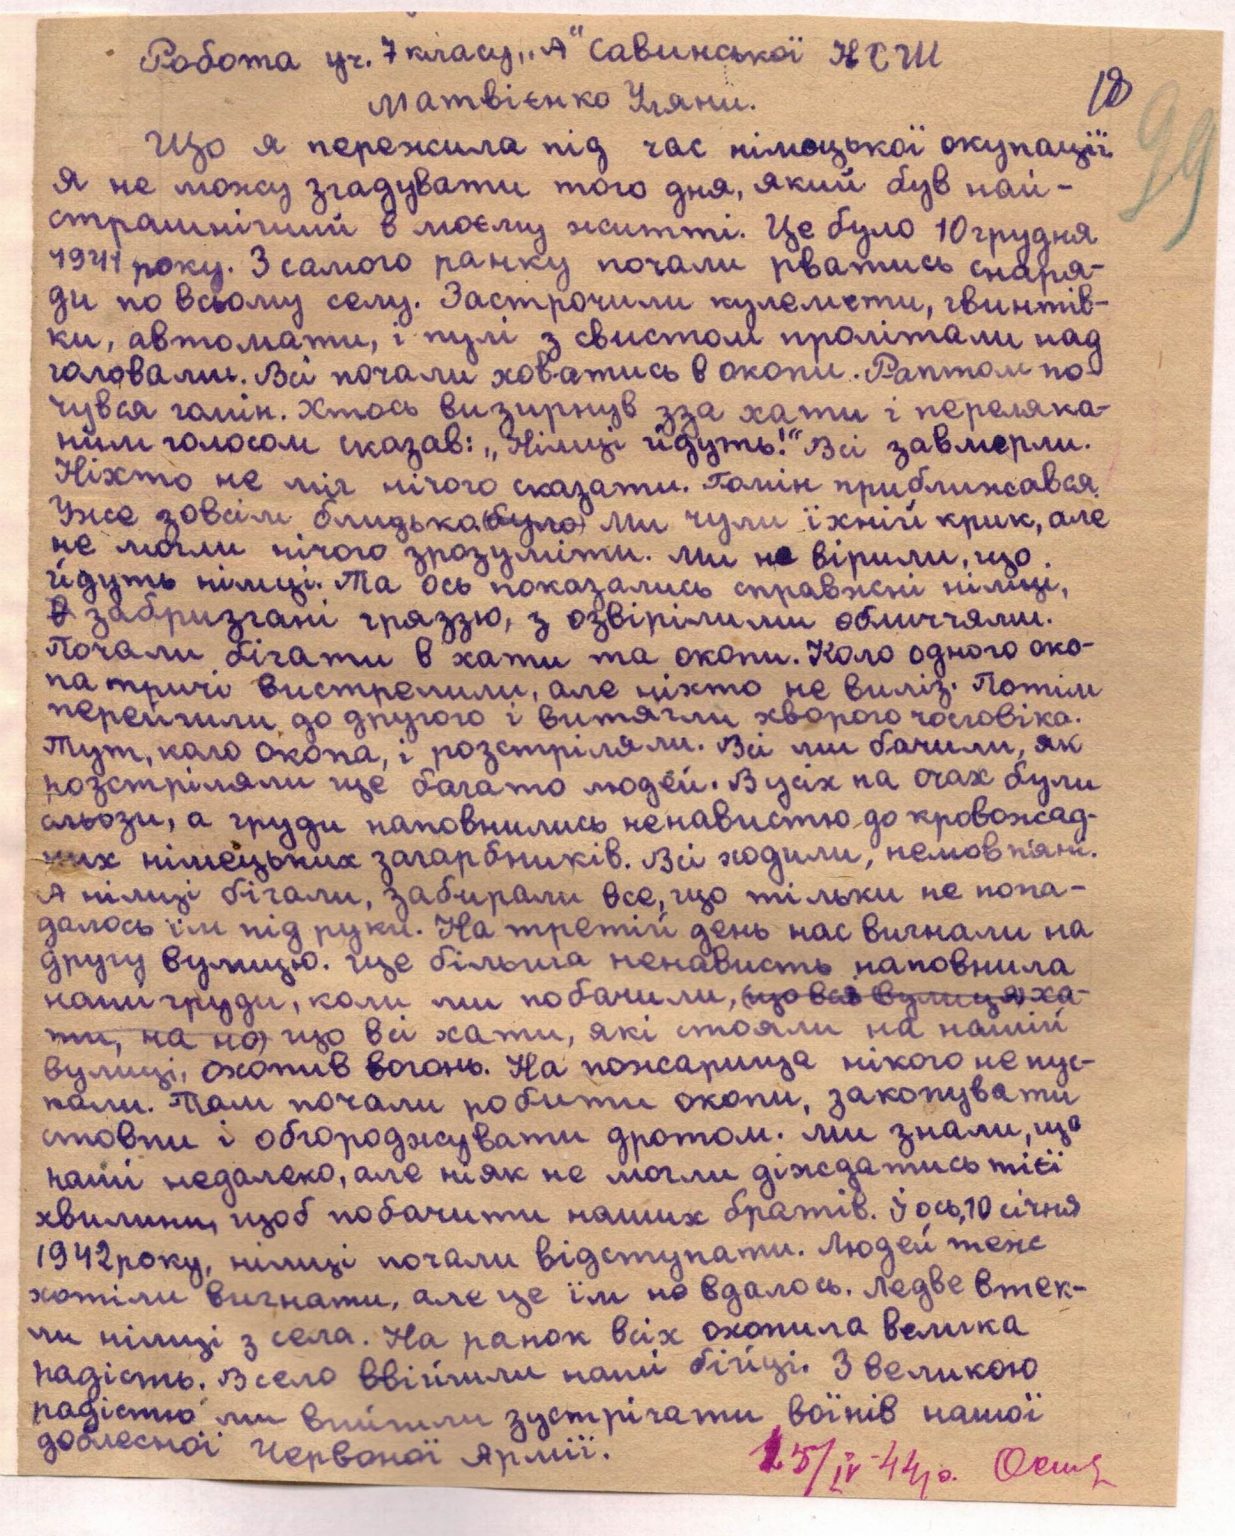 Робота уч. 7 класу „А" Савинської НСШ
Матвієнко Уляни.
18
99
Що я пережила під час німецької окупації.
Я не можу згадувати того дня, який був най-
страшнічий в моєму житті. Це було 10 грудня
1941 року. З самого ранку почали рватись снаря-
ди по всьому селу. Застрочили кулемети, гвинтів-
ки, автомати, і пулі з свистом пролітали над
головами. Всі почали ховатись в окопи. Раптом по-
чувся гомін. Хтось визирнув зза хати і переляка-
ним голосом сказав: „Німці йдуть!" Всі завмерли.
Ніхто не міг нічого сказати. Гомін приближався.
Уже зовсім близька (було) ми чули їхній крик, але
не могли нічого зрозуміти. Ми не вірили, що
йдуть німці. Та ось показались справжні німці,
забризгані гряззю, з озвірілими обличчями.
Почали бігати в хати та окопи. Коло одного око-
па тричі вистрелили, але ніхто не виліз. Потім
перейшли до другого і витягли хворого чоловіка.
Тут, коло окопа, і розстріляли. Всі ми бачили, як
розстріляли ще багато людей. В усіх на очах були
сльози, а груди наповнились ненавистю до кровожад-
них німецьких загарбників. Всі ходили, немов п'яні.
А німці бігали, забирали все, що тільки не попа-
далось їм під руки. На третій день нас вигнали на
другу вулицю. Ще більша ненависть наповнила
наші груди, коли ми побачили, (що вся вулиця) ха-
ти, на но) що всі хати, які стояли на нашій
вулиці, охопив вогонь. На пожарища нікого не пус-
кали. Там почали робити окопи, закопувати
стовпи і обгороджувати дротом. Ми знали, що
наші недалеко, але ніяк не могли діждатись тієї
хвилини, щоб побачити наших братів. І ось, 10 січня
1942 року, німці почали відступати. Людей теж
хотіли вигнати, але це їм не вдалось. Ледве втек-
ли німці з села. На ранок всіх охопила велика
радість. В село ввійшли наші бійці. З великою
радістю ми вийшли зустрічати воїнів нашої
доблесної Червоної Армії.
15/IV-44р.